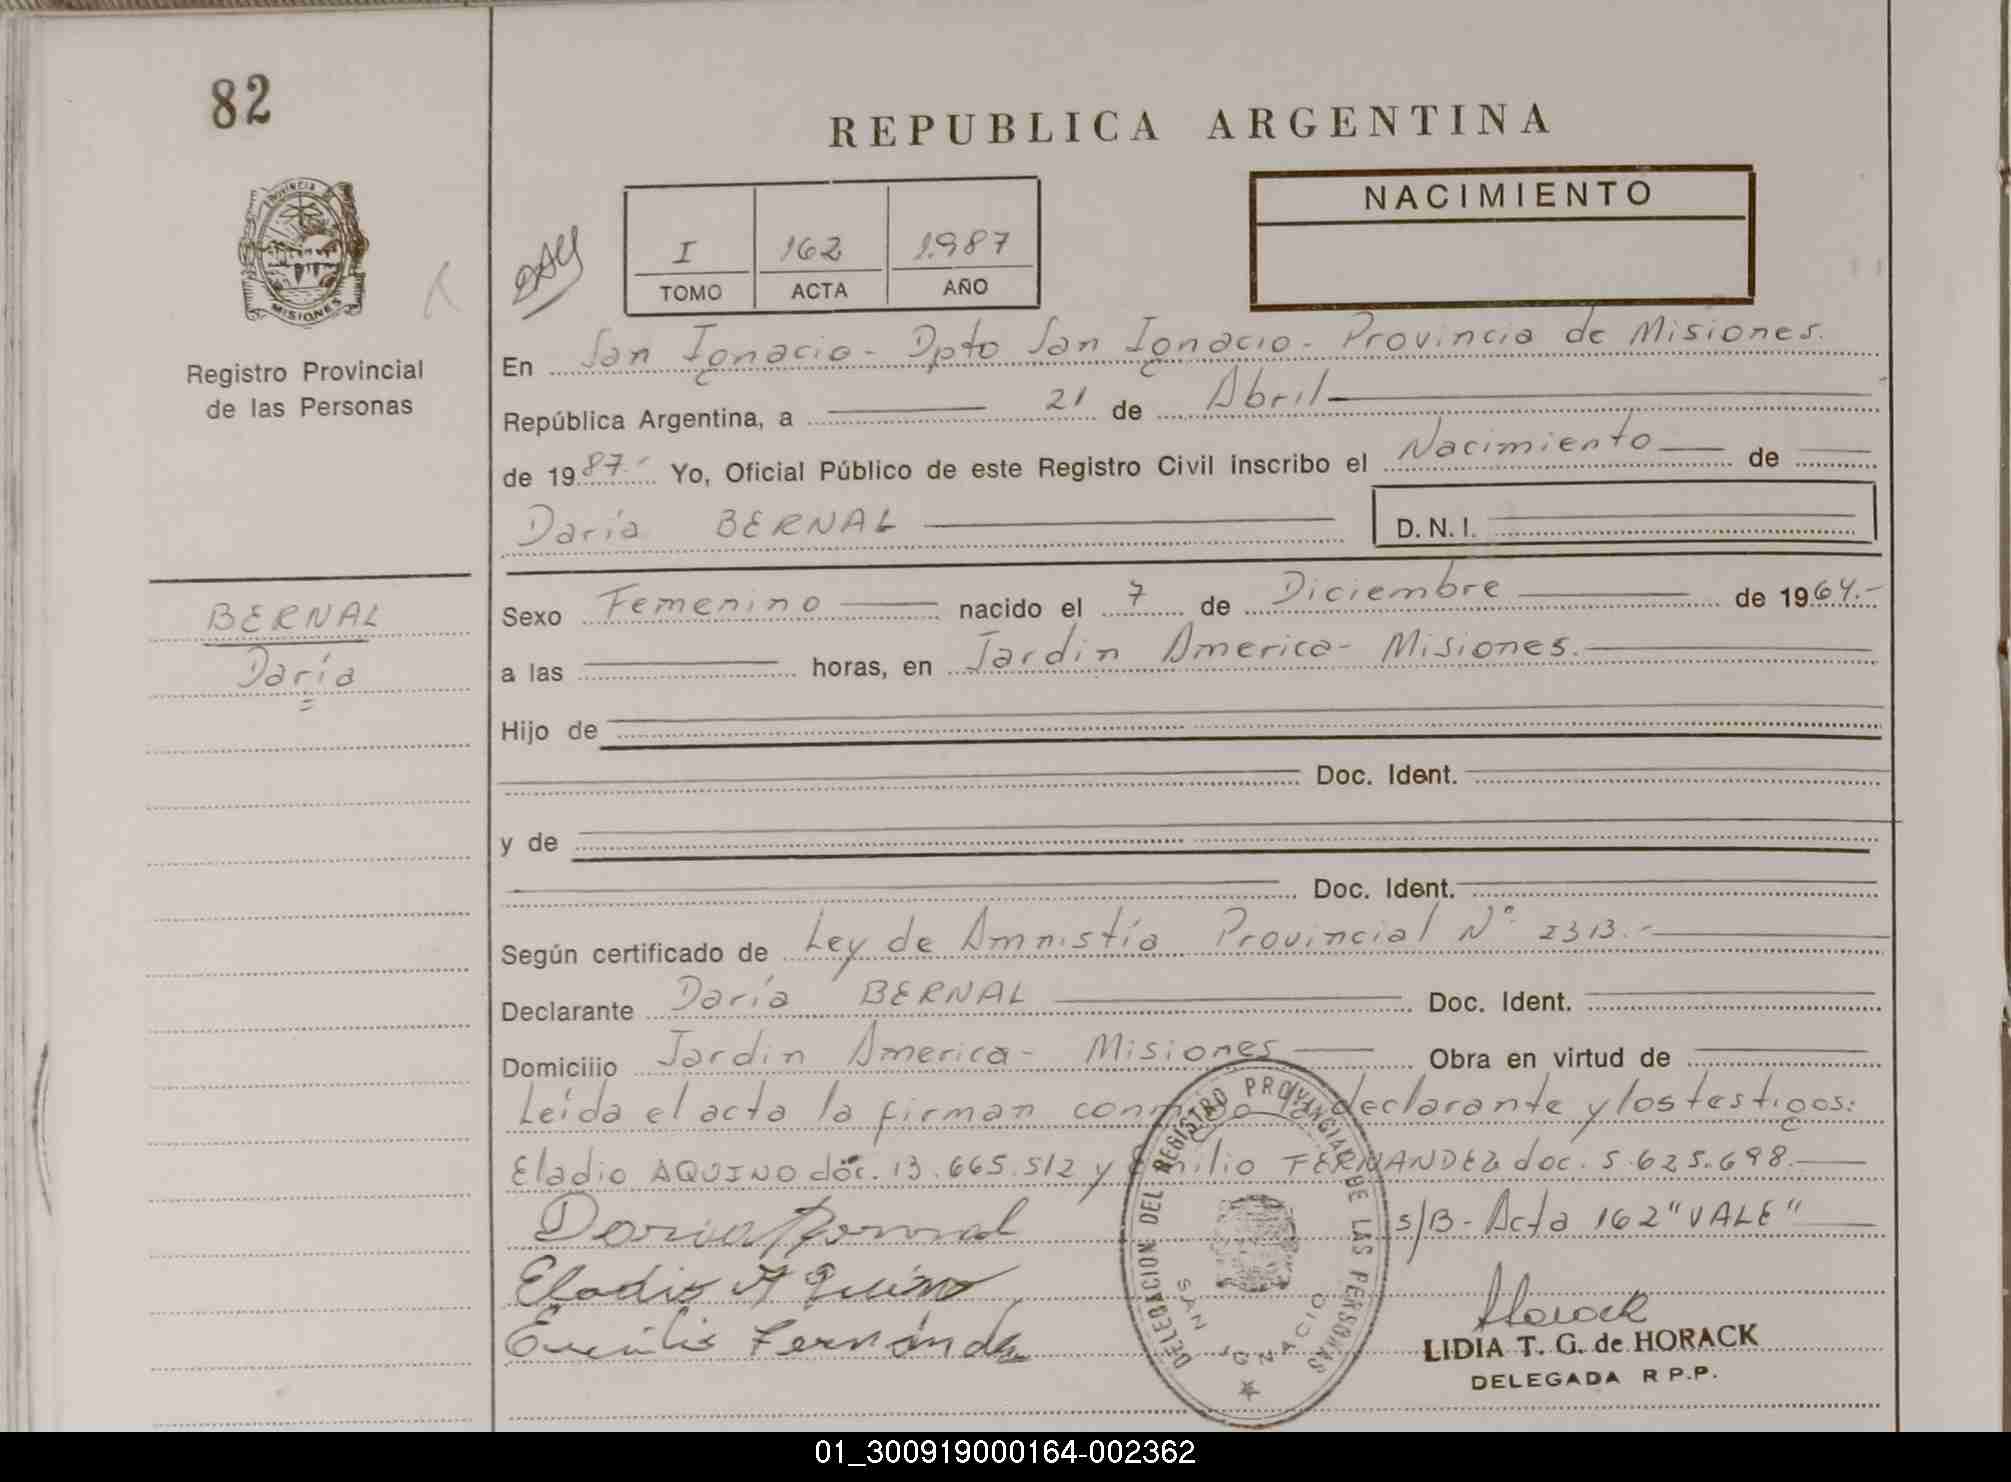 82
REPUBLICA ARGENTINA
PROVINCIA
MISIONES
Registro Provincial
de las Personas
I 162 1.987
TOMO ACTA AÑO
NACIMIENTO
En San Ignacio - Dpto San Ignacio - Provincia de Misiones.
República Argentina, a 21 de Abril
de 1987.- Yo, Oficial Público de este Registro Civil inscribo el Nacimiento de
Daría BERNAL D. N. I.
BERNAL
Daría
Sexo Femenino nacido el 7 de Diciembre de 1964.-
a las horas, en Jardin America - Misiones.
Hijo de
Doc. Ident.
y de
Doc. Ident.
Según certificado de Ley de Amnistía Provincial N° 2313.-
Declarante Daría BERNAL Doc. Ident.
Domicilio Jardin America - Misiones Obra en virtud de
Leída el acta la firman conmigo la declarante y los testigos:
Eladio AQUINO doc. 13.665.512 y Emilio FERNANDEZ doc. 5.625.698.
s/B - Acta 162 "VALE"
Daria Bernal
Eladio Aquino
Emilio Fernández
DELEGACION DEL REGISTRO PROVINCIAL DE LAS PERSONAS
SAN IGNACIO
Horack
LIDIA T. G. de HORACK
DELEGADA R P.P.
01_300919000164-002362